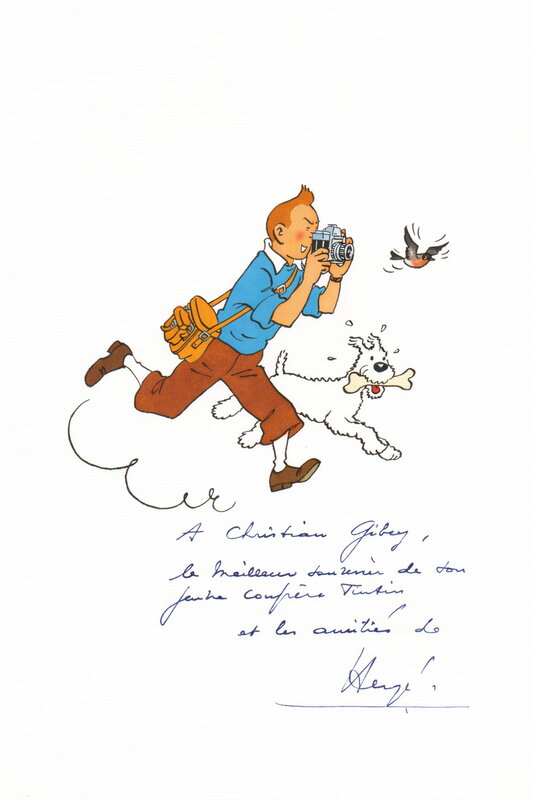 A Christian Gibey,
le meilleur souvenir de son
jeune confrère Tintin
et les amitiés de
Hergé.